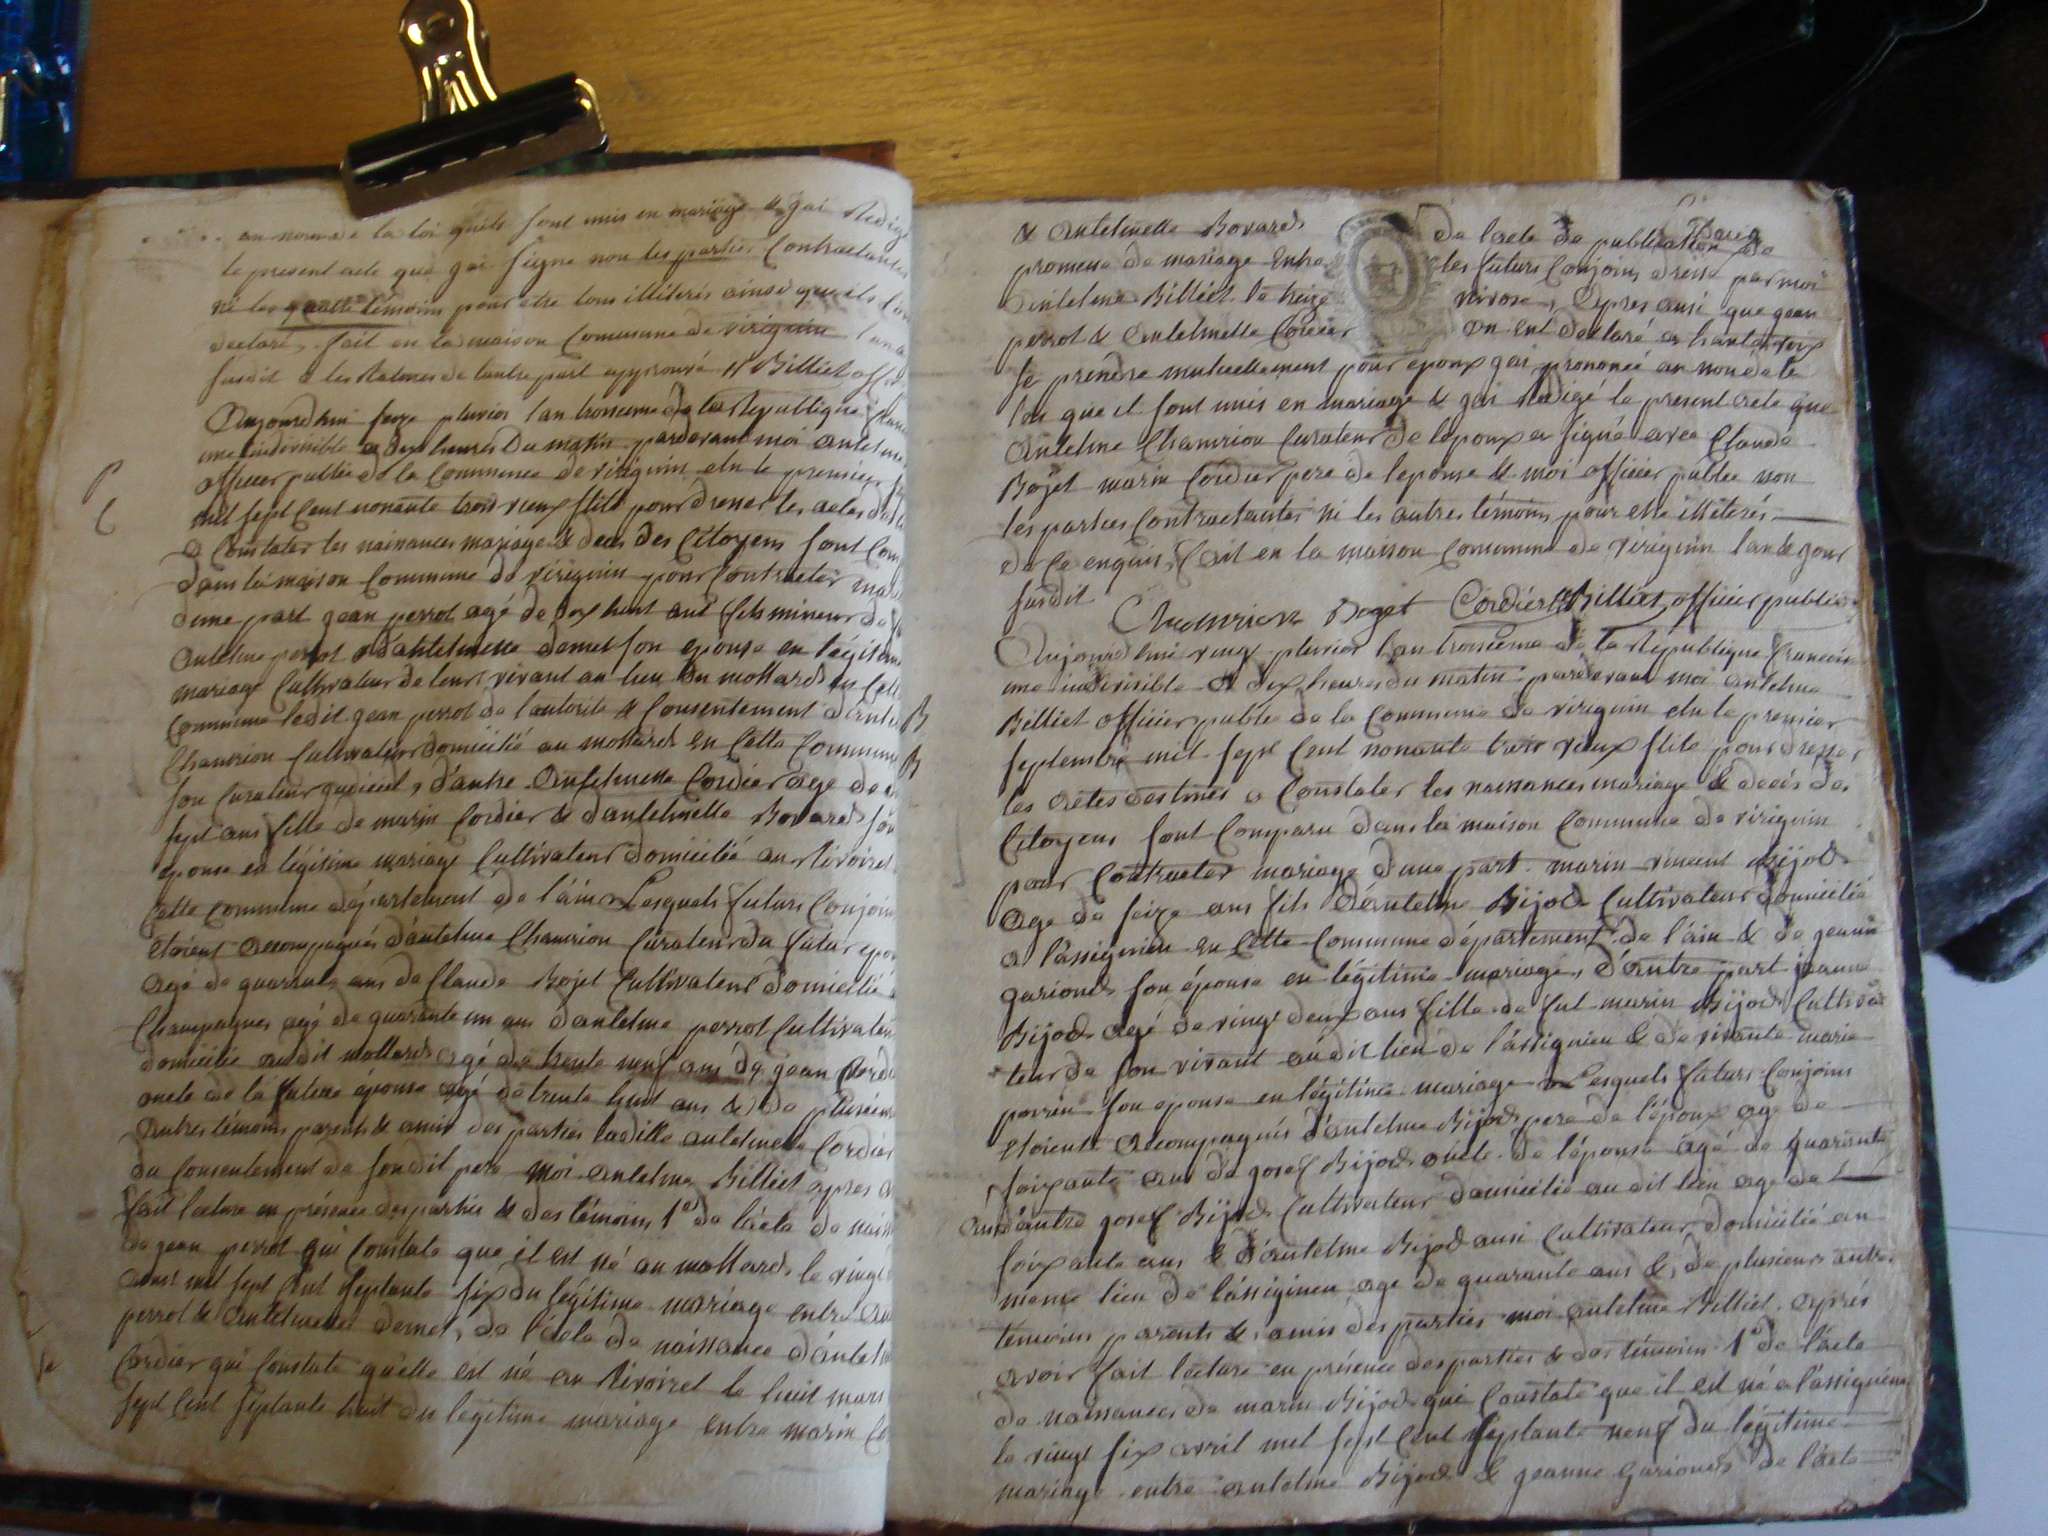 au nom de la loi quils sont unis en mariage & jai Redigé
le present acte que jai signe non les parties Contractantes
ni les quatre témoins pour etre tous illiterés ainsi quils l'on
declaré, fait en la maison Commune de virignin lan
susdit & les Ratures de lautre part approuvé Billiet offi
Aujourdhui seize pluvios lan troisieme de la Republique franc
une indivisible a dix heures du matin pardevant moi antelme
officier public de la Commune de virignin elu le premier
mil sept Cent nonante trois vieux stile pour dresser les actes
a Constater les naissances mariage & deces des Citoyens sont Com
dans la maison Commune de virignin pour Contracter mari
dune part jean perrot agé de dix huit ans fils mineur de
antelme perrot & d'antelmette demet son epouse en légitime
mariage Cultivateur de leur vivant au lieu du mollard en Cette
Commune ledit jean perrot de l'autorité & Consentement d'antel
Chamrion Cultivateur domicilié au mollard en Cette Commune
son Curateur judiciel, d'autre Antelmette Cordier age de
sept ans fille de marin Cordier & d'antelmette Bovard son
epouse en légitime mariage Cultivateur domicilié au Rivoiret
Cette Commune département de l'ain Lesquels futurs Conjoin
étoient accompagnés d'antelme Chamrion Curateur du futur epou
agé de quarante ans de Claude Bojet Cultivateur domicilié
Champagnes agé de quarante un ans d'antelme perrot Cultivateur
domicilié audit mollard agé de trente neuf ans de jean Cordi
oncle de la future épouse agé de trente huit ans & de plusieurs
autres témoins parents & amis des parties ladite antelmette Cordier
du Consentement de son dit pere moi antelme Billiet apres a
fait lecture en présence des parties & des témoins 1° de l'acte de naiss
de jean perrot qui Constate que il est né au mollard le vingt
aout mil sept Cent septante six du légitime mariage entre an
perrot & antelmette demet, de l'acte de naissance d'antelm
Cordier qui Constate qu'elle est né au Rivoiret le huit mars
sept Cent septante huit du legitime mariage entre marin Co
& antelmette Bovard
promesse de mariage entre
antelme Billiet le treize
perrot & antelmette Cordier
de l'acte de publication de
les futurs Conjoins dressé par moi
nivose, Apres aussi que jean
on ent declaré a haute voix
se prendre mutuellement pour epoux jai prononcé au nom de la
loi que il sont unis en mariage & jai Redigé le present acte que
antelme Chamrion Curateur de lepoux a signé avec Claude
Bojet marin Cordier pere de lepouse & moi officier public non
les parties Contractantes ni les autres témoins pour etre illiterés
de Ce enquis, fait en la maison Commune de virignin lan & jour
susdit
Chamrion Boget Cordier Billiet officier public
Aujourdhui vingt pluvios lan troisieme de la République francoise
une indivisible a dix heures du matin pardevant moi antelme
Billiet officier public de la Commune de virignin elu le premier
septembre mil sept Cent nonante trois vieux stile pour dresser
les actes destinés a Constater les naissances mariage & décés des
Citoyens sont Comparu dans la maison Commune de virignin
pour Contracter mariage d'une part marin vincent Bijod
age de seize ans fils d'antelme Bijod Cultivateur domicilié
a lassignieu en Cette Commune département de l'ain & de jeanne
gariond son épouse en légitime mariage, d'autre part jeanne
Bijod agé de vingt deux ans fille de fut marin Bijod Cultiva
teur de son vivant audit lieu de l'assignieu & de vivante marie
perrin son epouse en légitime mariage Lesquels futurs Conjoins
etoient accompagnés d'antelme Bijod pere de l'époux age de
soixante ans de josef Bijod oncle de l'épouse agé de quarante
ans d'autre josef Bijod Cultivateur domicilié au dit lieu age de
soixante ans & d'antelme Bijod ausi Cultivateur domicilié au
meme lieu de lassignieu age de quarante ans & de plusieurs autres
temoins parents & amis des parties moi antelme Billiet aprés
avoir fait lecture en présence des parties & des témoins 1° de l'acte
de naissances de marin Bijod qui Constate que il est né a l'assignieu
le vingt six avril mil sept Cent septante neuf du légitime
mariage entre antelme Bijod & jeanne gariond de l'acte